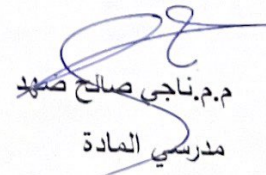 م.م.ناجي صالح صهد
مدرسي المادة